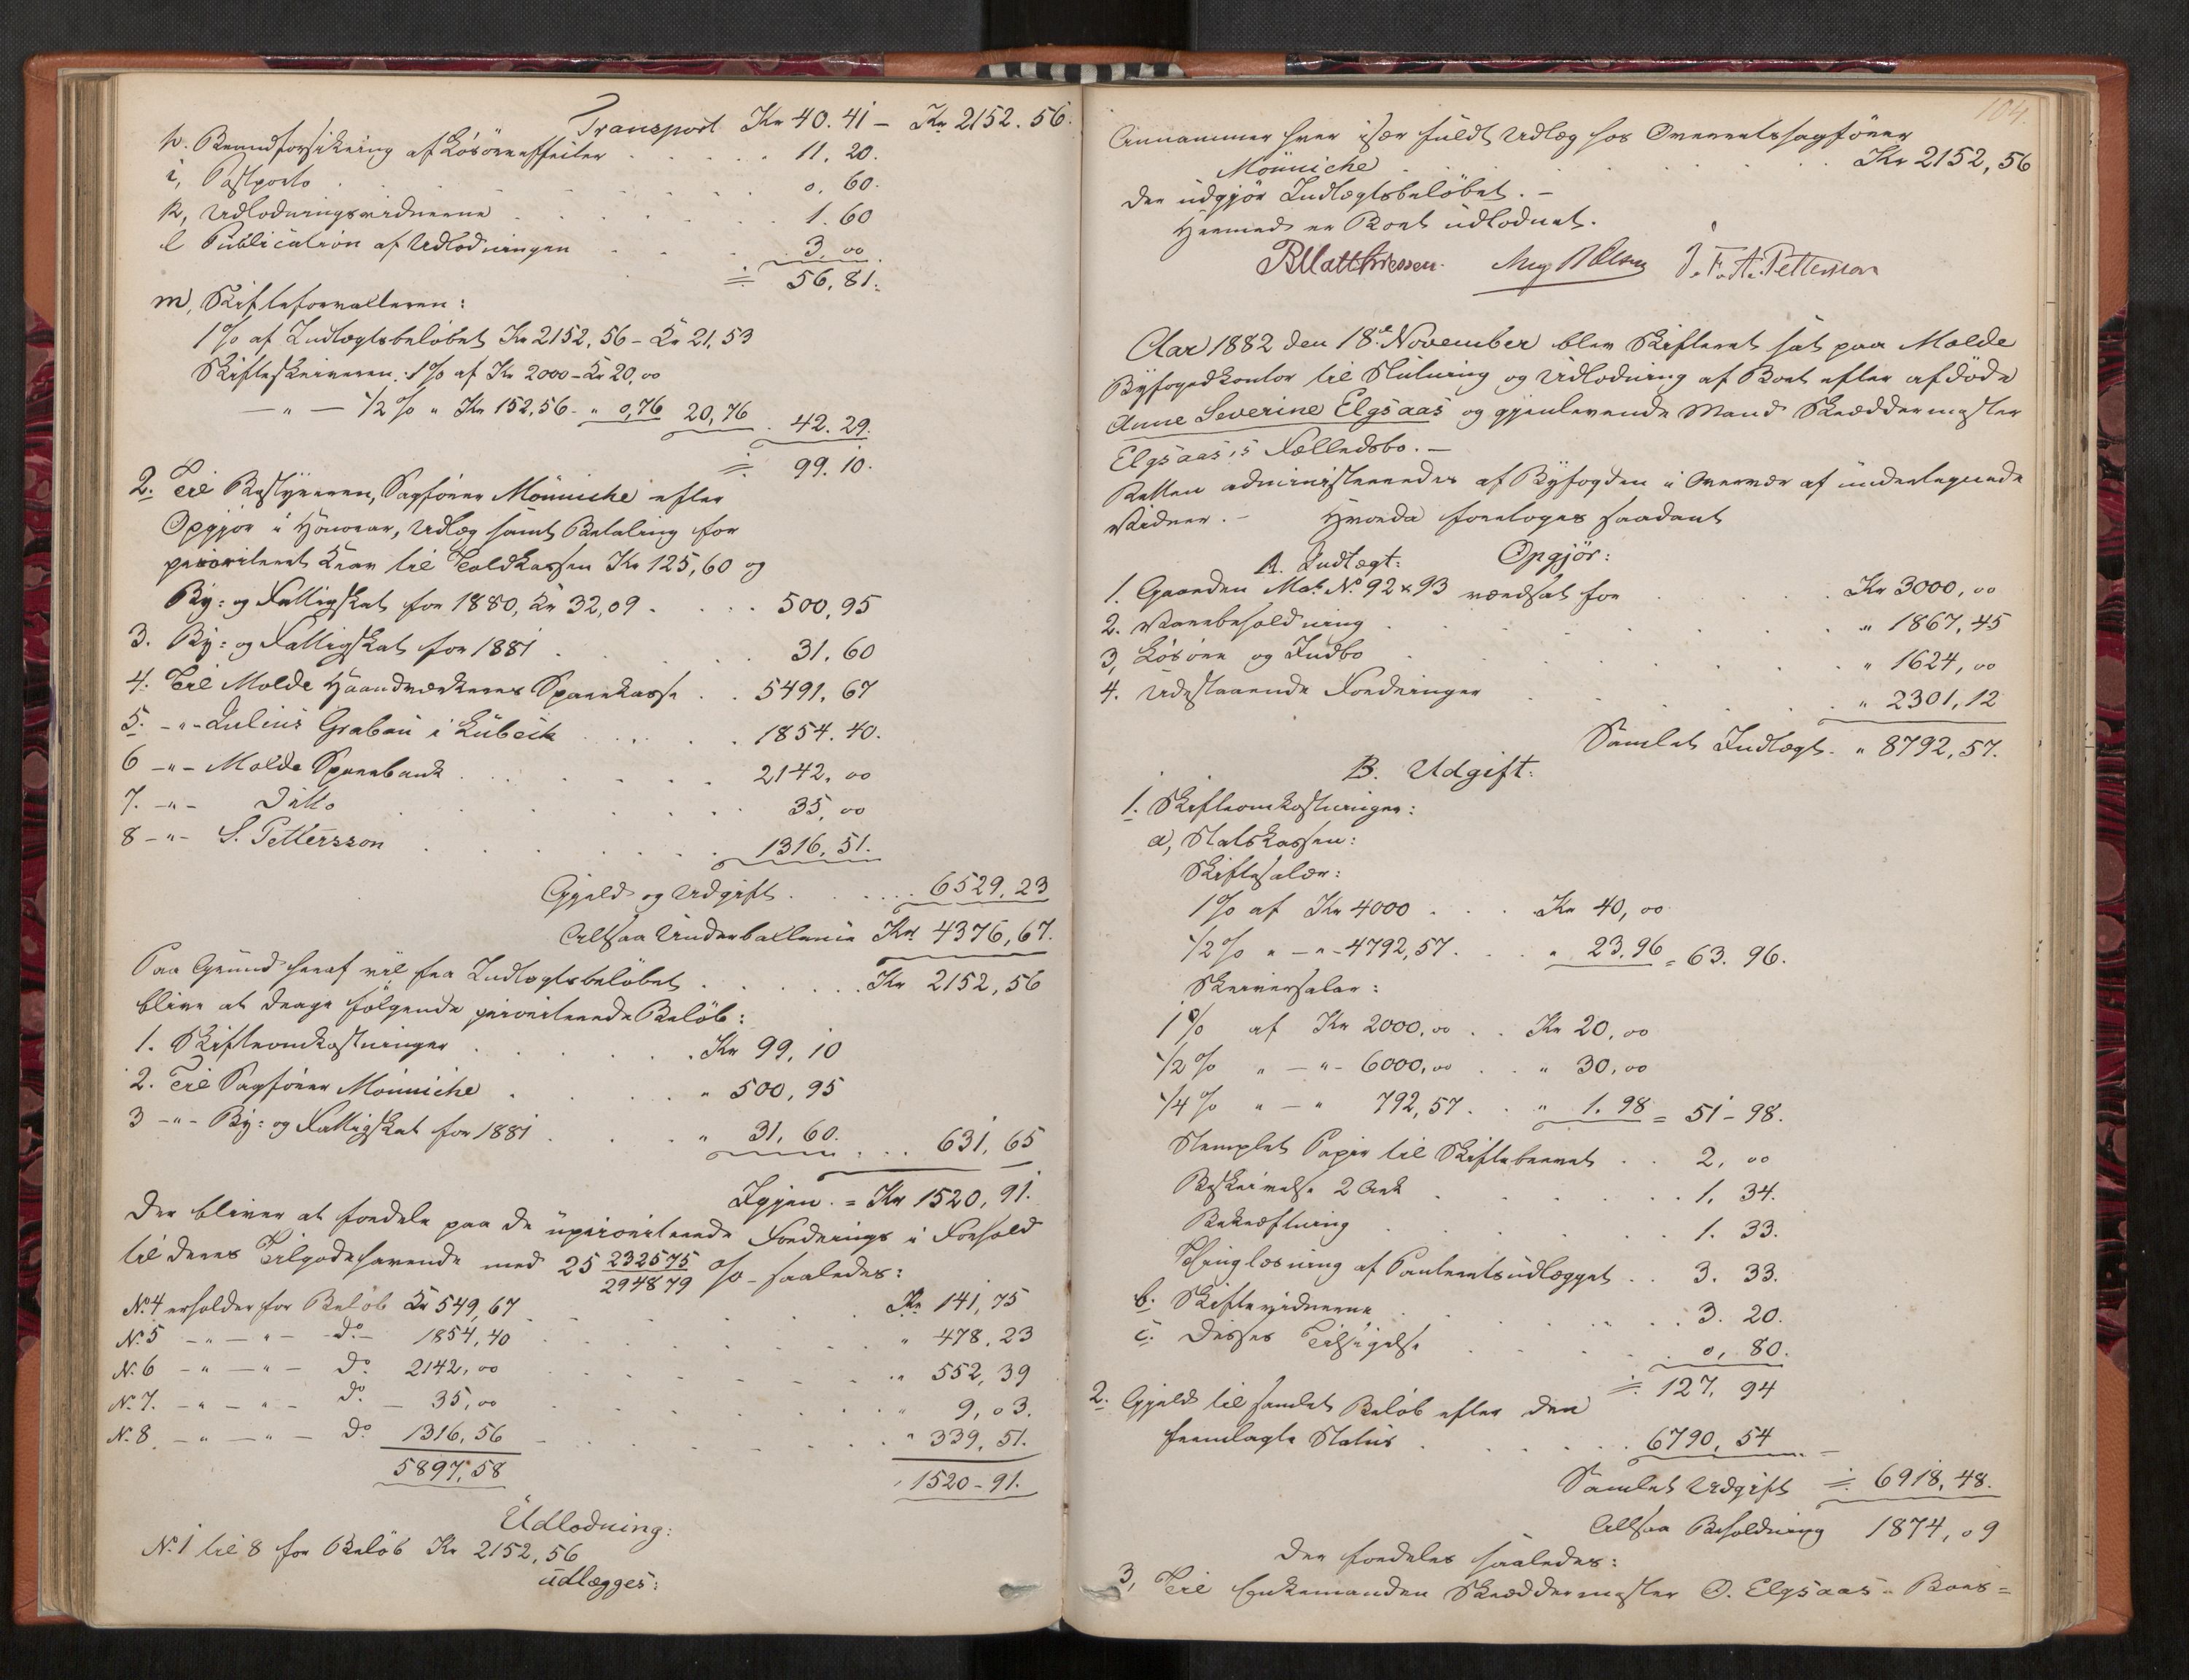 Transport Kr 40.41 – Kr 2152.56.
h. Brandforsikring af Løsøreeffecter . . . 11, 20.
i, Postporto . . . 0, 60.
k, Udlodningsvidnerne . . . 1. 60
l Publication af Udlodningen . . . 3, 00
÷ 56, 81.
m, Skifteforvalteren:
1 % af Indtægtsbeløbet Kr 2152, 56 – Kr 21, 53
Skifteskriveren: 1 % af Kr 2000 – Kr 20, 00
— " — 1/2 % " Kr 152,56 - " 0,76 20,76 . 42. 29.
÷ 99. 10.
2. Til Bestyreren, Sagfører Mönniche efter
Opgjør i Honorar, Udlæg samt Betaling for
prioriteret Krav til Toldkassen Kr 125,60 og
By- og Fattigskat for 1880, Kr 32,09 . . . 500, 95
3. By- og Fattigskat for 1881 . . . 31. 60
4. Til Molde Haandværkeres Sparekasse . . 5491, 67
5. -"- Julius Grabau i Lübeck . . . 1854. 40.
6 -"- Molde Sparebank . . . 2142, 00
7. -"- Ditto . . . 35, 00
8 -"- S. Pettersson . . . 1316, 51.
Gjæld og Udgift . . . 6529. 23
Altsaa Underballence Kr 4376, 67.
Paa Grund heraf vil fra Indtægtsbeløbet . . . Kr 2152, 56
blive at drage følgende prioriterede Beløb:
1. Skifteomkostninger . . . Kr 99, 10
2. Til Sagfører Mönniche . . . " 500, 95
3 -"- By- og Fattigskat for 1881 . . . " 31, 60. . . . 631, 65
Igjen = Kr 1520, 91.
Der bliver at fordele paa de uprioriterede Fordringer i Forhold
til deres Tilgodehavende med 25 232575/294879 % - saaledes:
No 4 erholder for Beløb Kr 549, 67 . . . Kr 141, 75
No 5 -"- -"- do - 1854, 40 . . . " 478. 23
No 6 -"- -"- do 2142, 00 . . . " 552, 39
No 7. -"- -"- do - 35, 00 . . . " 9, 03.
No 8. -"- -"- do 1316, 56 . . . " 339, 51.
5897, 58 " 1520 - 91.
Udlodning:
No 1 til 8 for Beløb Kr 2152, 56
udlægges:
104.
Annammer hver især fuldt Udlæg hos Overretssagfører
Mönniche . . . Kr 2152, 56
der udgjør Indtægtsbeløbet. –
Hermed er Boet udloddet.
B Matthiessen. Aug B Olsen J. F. A. Pettersen
Aar 1882 den 18de November blev Skifteret sat paa Molde
Byfogedkontor til Slutning og Udlodning af Boet efter afdøde
Anne Severine Elgsaas og gjenlevende Mand Skræddermester
Elgsaas's Fælledsbo. –
Retten administreredes af Byfogden i Overvær af undertegnede
Vidner. – Hvorda foretoges saadant
Opgjør:
A. Indtægt:
1. Gaarden Mat. No 92 & 93 værdsat for . . . Kr 3000, 00
2. Varebeholdning . . . " 1867, 45
3, Løsøre og Indbo . . . " 1624, 00
4. Udestaaende Fordringer . . . " 2301, 12
Samlet Indtægt. " 8792, 57.
B. Udgift:
1. Skifteomkostninger:
a, Statskassen:
Skiftesalær:
1 % af Kr 4000 . . . Kr 40, 00
1/2 % " -"- 4792, 57 . . . " 23, 96 = 63. 96.
Skriversalær:
1 % af Kr 2000, 00 . . Kr 20, 00
1/2 % " -"- 6000, 00 . . " 30, 00
1/4 % " - " 792, 57 . . " 1. 98 = 51 - 98.
Stemplet Papir til Skiftebrevet . . 2, 00
Beskrivelse 2 Ark . . . 1, 34.
Bekræftning . . . 1. 33.
Thinglæsning af Panteretsudlægget . . 3. 33.
b. Skiftevidnerne . . . 3. 20.
c. Disses Tilsigelse . . . 0, 80.
÷ 127, 94
2. Gjæld til samlet Beløb efter den
fremlagte Status . . . 6790, 54
Samlet Udgift ÷ 6918, 48.
Altsaa Beholdning 1874, 09
Der fordeles saaledes:
3, Til Enkemanden Skræddermester O. Elgsaas Boes=